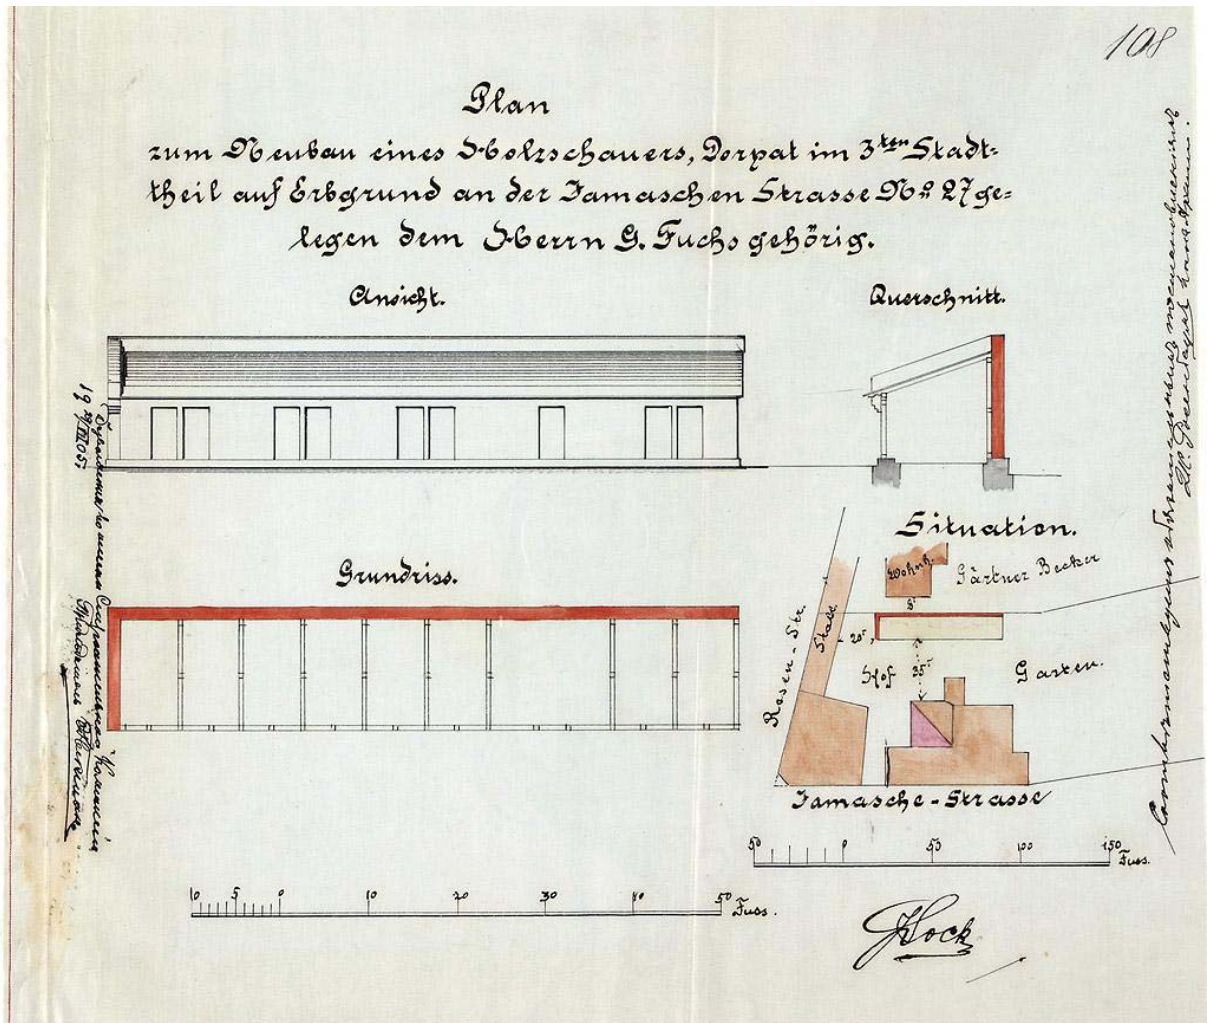 108
Plan
zum Neubau eines Holzschauers, Dorpat im 3ten Stadt=
theil auf Erbgrund an der Jamaschen Strasse No 27 ge=
legen dem Herrn G. Fuchs gehörig.
Ansicht.
Querschnitt.
Situation.
Grundriss.
Wohnh.
Gärtner Becker
8'
Rosen-Str.
Stall
20'
Hof
35'
Garten.
Jamasche-Strasse
50 0 50 100 150 Fuss.
10 5 0 10 20 30 40 50 Fuss.